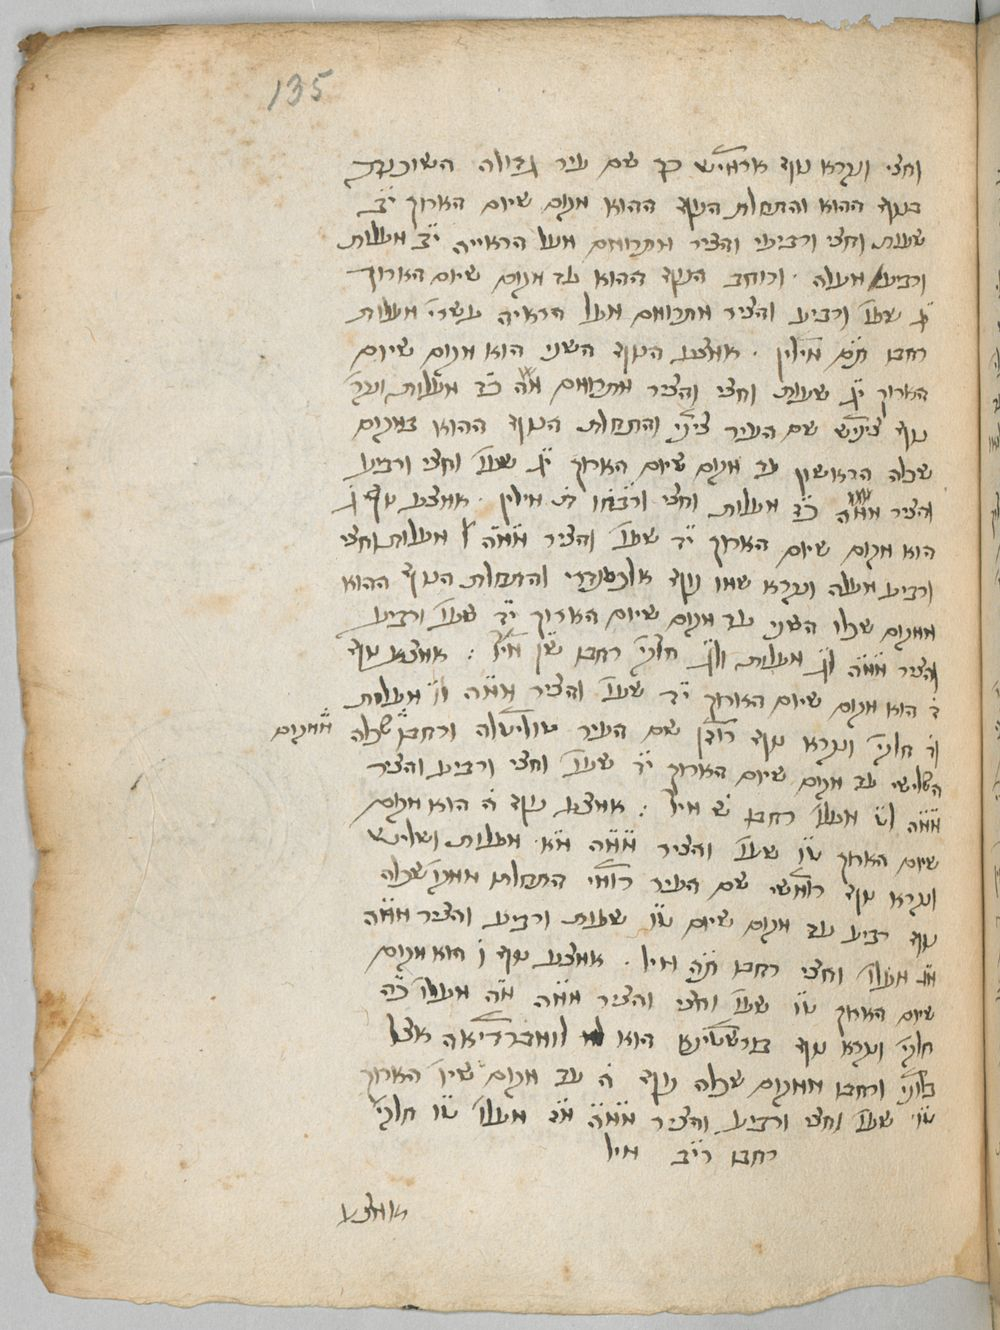 135
וחצי ונקרא נוף ארמיש כך שם עיר גדולה השוכנת
בנוף ההוא והתחלת הנוף ההוא מקום שיום הארוך י״ב
שעות וחצי ורביעי והציר מתרומם מעל הראייה י״ב מעלות
ורביע מעלה · ורוחב הנוף ההוא עד מקום שיום הארוך
י״ג שעו׳ ורביע והציר מתרומם מעל הראיה עשרי׳ מעלות
רחבו ת״ם מילין · אמצע הנוף השני הוא מקום שיום
הארוך י״ג שעות וחצי והציר מתרומם מ״ה כ״ד מעלות ונקר׳
נוף ציניש שם העיר ציני והתחלת הנוף ההוא במקום
שכלה הראשון עד מקום שיום הארוך י״ג שעו׳ וחצי ורביע
והציר ממ״ה כ״ד מעלות וחצי ורחבו ת׳ מילין · אמצע נוף ג׳
הוא מקום שיום הארוך י״ד שעו׳ והציר ממ״ה ל׳ מעלות וחצי
ורביע מעלה ונקרא שמו נוף אלכסנדרי והתחלת הנוף ההוא
ממקום שכלו השני עד מקום שיום הארוך י״ד שעו׳ ורביע
והציר ממ״ה ל״ג מעלות ול״ג חלקי׳ רחבו ש״ן מיל׳ : אמצע נוף
ד׳ הוא מקום שיום הארוך י״ד שעו׳ והציר ממ״ה ל״ו מעלות
חלקי׳ ונקרא נוף רודן שם העיר טולטולה ורחבו שכלה
ממקום
השלישי עד מקום שיום הארוך י״ד שעו׳ וחצי ורביע והציר
ממ״ה ל״ט מעלו׳ רחבו ש׳ מיל׳ : אמצע נוף ה׳ הוא מקום
שיום הארוך ט״ו שעו׳ והציר ממ״ה מ״א מעלות ושליש
ונקרא נוף רומשי שם העיר רומי התחלתו ממקו׳ שכלה
נוף רביע עד מקום שיום ט״ו שעות ורביע והציר ממ״ה
מ״ג מעלו׳ וחצי רחבו מיל · אמצע נוף ו׳ הוא מקום
שיום הארוך ט״ו שעו׳ וחצי והציר ממ״ה מ״ה מעלו׳ כ״ה
חלקי׳ ונקרא נוף הוא לומברדיאה אצל
ורחבו ממקום שכלה נוף ה׳ עד מקום שיו׳ הארוך
ט״ו שעו׳ וחצי ורביע והציר ממ״ה מעלו׳ ט״ו חלקי׳
רחבו רי״ב מיל
אמצע